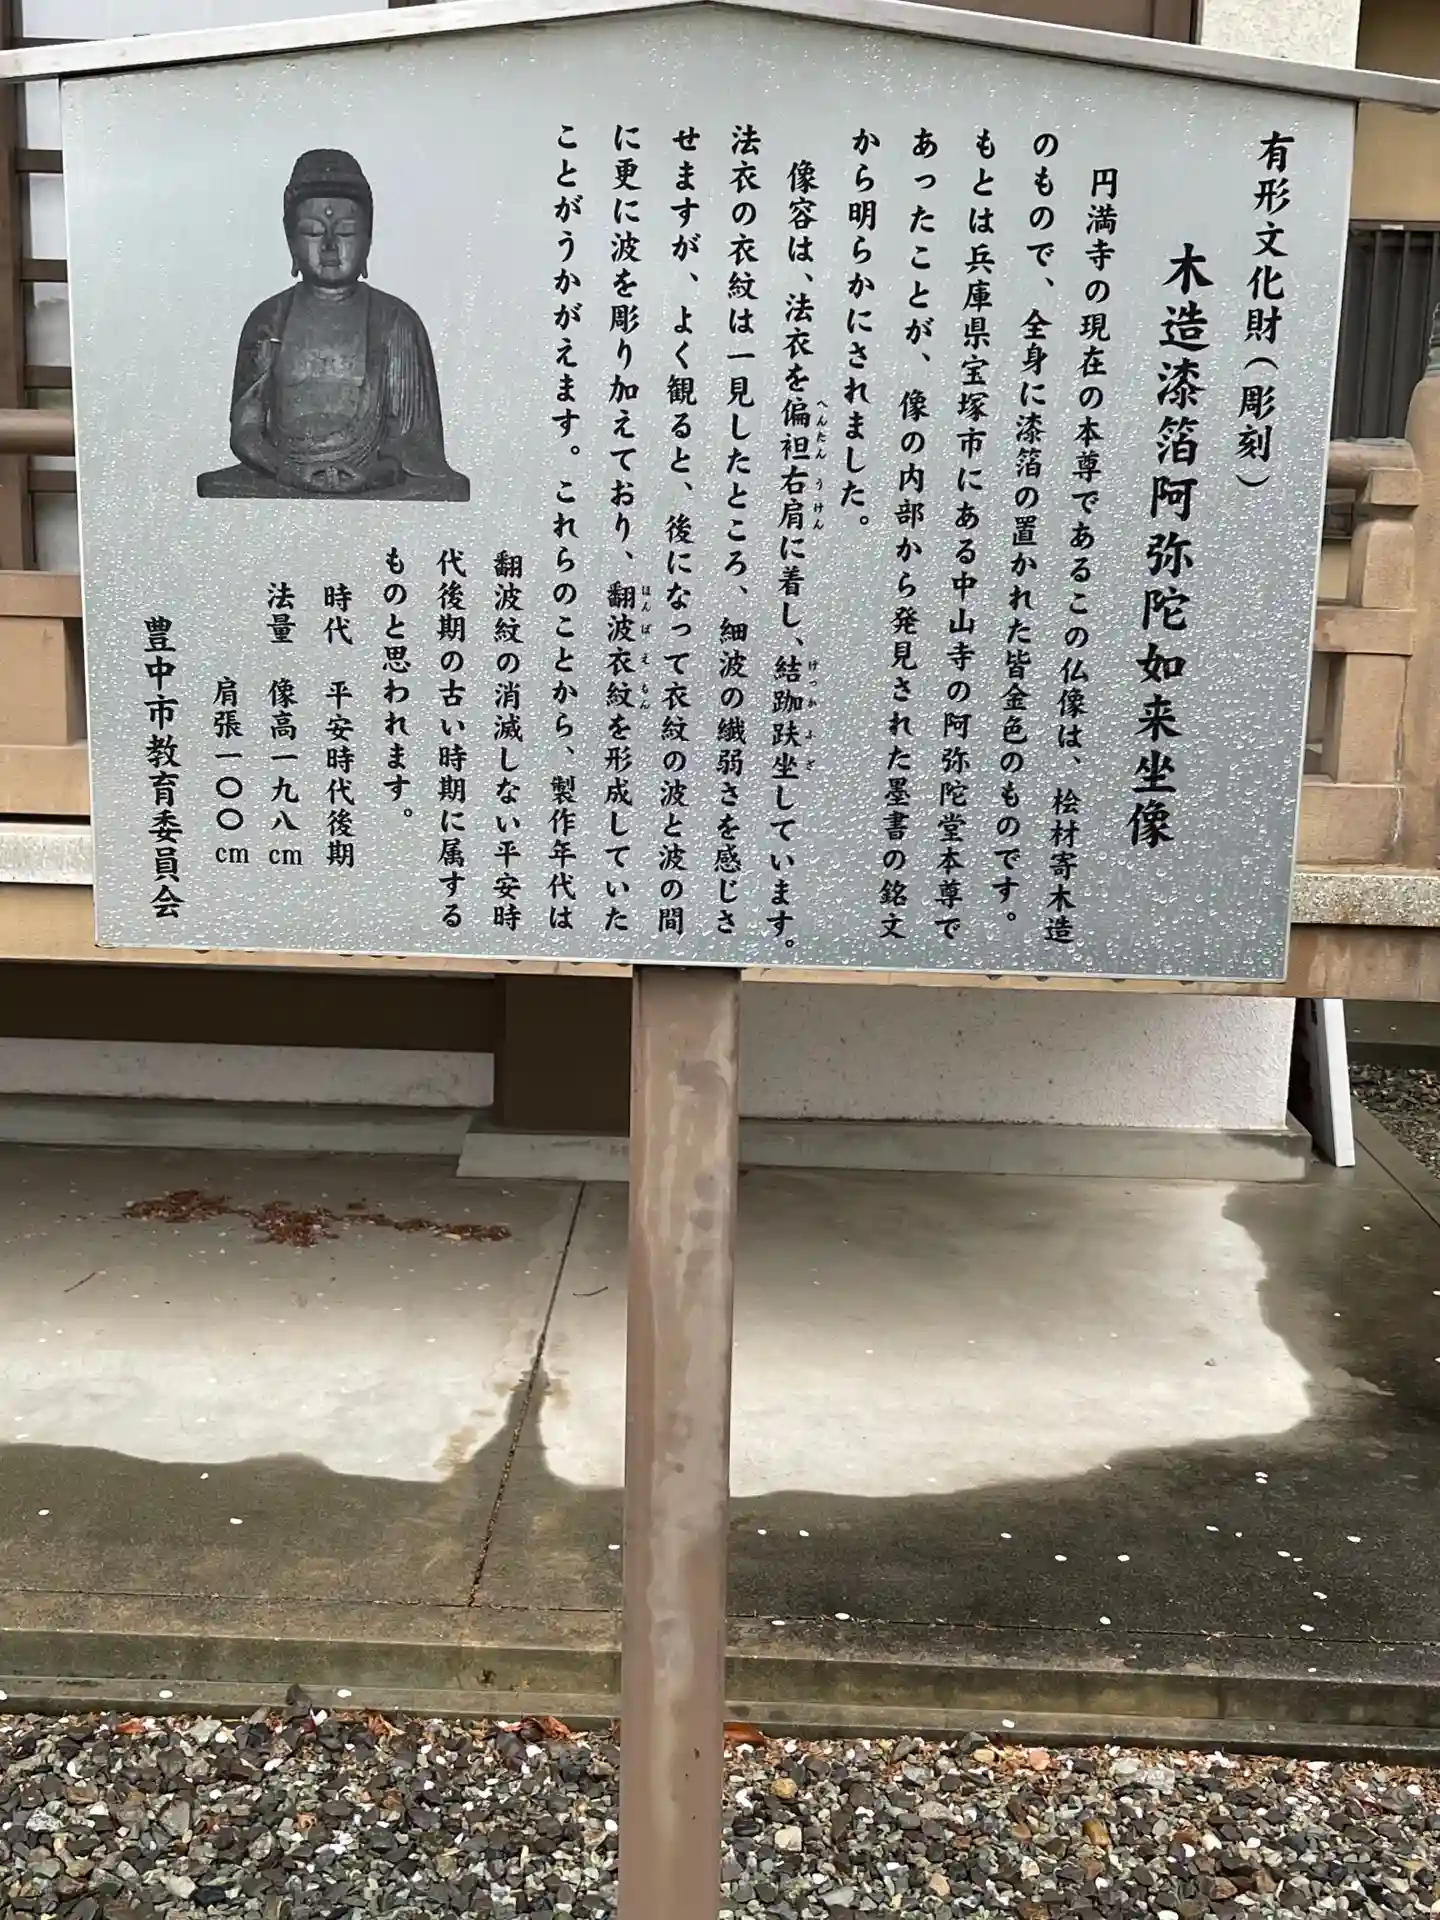 有形文化財（彫刻）
木造漆箔阿弥陀如来坐像
円満寺の現在の本尊であるこの仏像は、桧材寄木造
のもので、全身に漆箔の置かれた皆金色のものです。
もとは兵庫県宝塚市にある中山寺の阿弥陀堂本尊で
あったことが、像の内部から発見された墨書の銘文
から明らかにされました。
像容は、法衣を偏袒右肩に着し、結跏趺坐しています。
へんたん うけん けっかふざ
法衣の衣紋は一見したところ、細波の繊弱さを感じさ
せますが、よく観ると、後になって衣紋の波と波の間
に更に波を彫り加えており、翻波衣紋を形成していた
ほんぱえもん
ことがうかがえます。これらのことから、製作年代は
翻波紋の消滅しない平安時
代後期の古い時期に属する
ものと思われます。
時代 平安時代後期
法量 像高一九八cm
肩張一〇〇cm
豊中市教育委員会